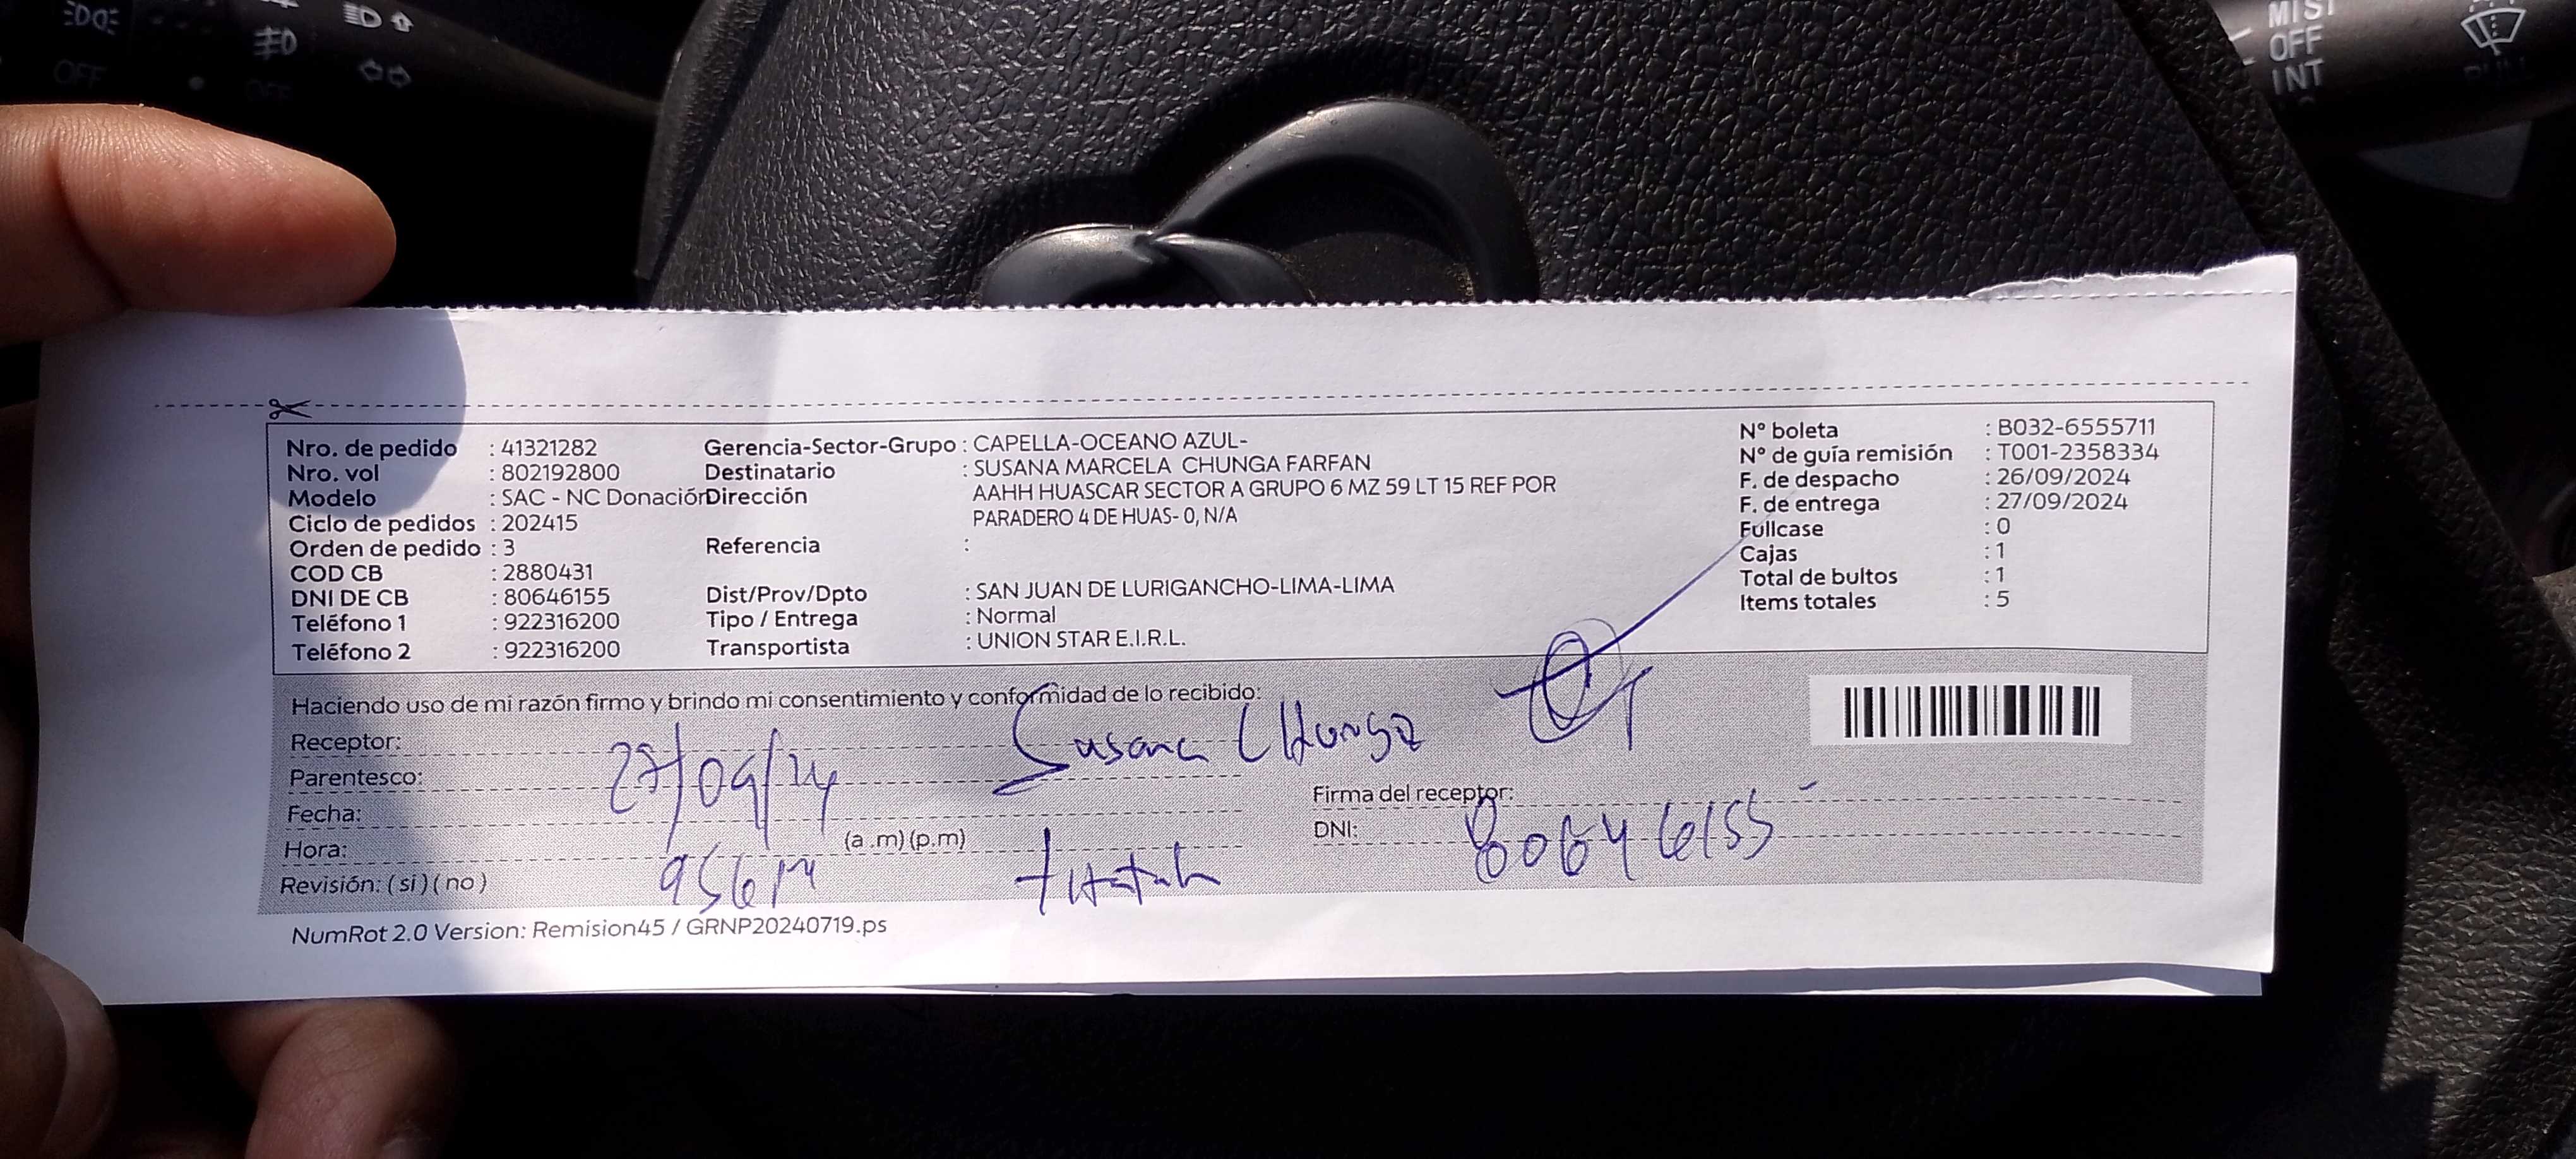 OFF
OFF
MIST
OFF
INT
PULL
Nro. de pedido : 41321282
Nro. vol : 802192800
Modelo : SAC - NC Donación
Ciclo de pedidos : 202415
Orden de pedido : 3
COD CB : 2880431
DNI DE CB : 80646155
Teléfono 1 : 922316200
Teléfono 2 : 922316200
Gerencia-Sector-Grupo : CAPELLA-OCEANO AZUL-
Destinatario : SUSANA MARCELA CHUNGA FARFAN
Dirección AAHH HUASCAR SECTOR A GRUPO 6 MZ 59 LT 15 REF POR
PARADERO 4 DE HUAS- 0, N/A
Referencia :
Dist/Prov/Dpto : SAN JUAN DE LURIGANCHO-LIMA-LIMA
Tipo / Entrega : Normal
Transportista : UNION STAR E.I.R.L.
N° boleta : B032-6555711
N° de guía remisión : T001-2358334
F. de despacho : 26/09/2024
F. de entrega : 27/09/2024
Fullcase : 0
Cajas : 1
Total de bultos : 1
Items totales : 5
Haciendo uso de mi razón firmo y brindo mi consentimiento y conformidad de lo recibido:
Receptor: Susana CHunga
Parentesco:
Fecha: 27/09/24
Hora: (a .m) (p.m)
Revisión: ( si ) ( no )
Firma del receptor:
DNI: 80646155
NumRot 2.0 Version: Remision45 / GRNP20240719.ps